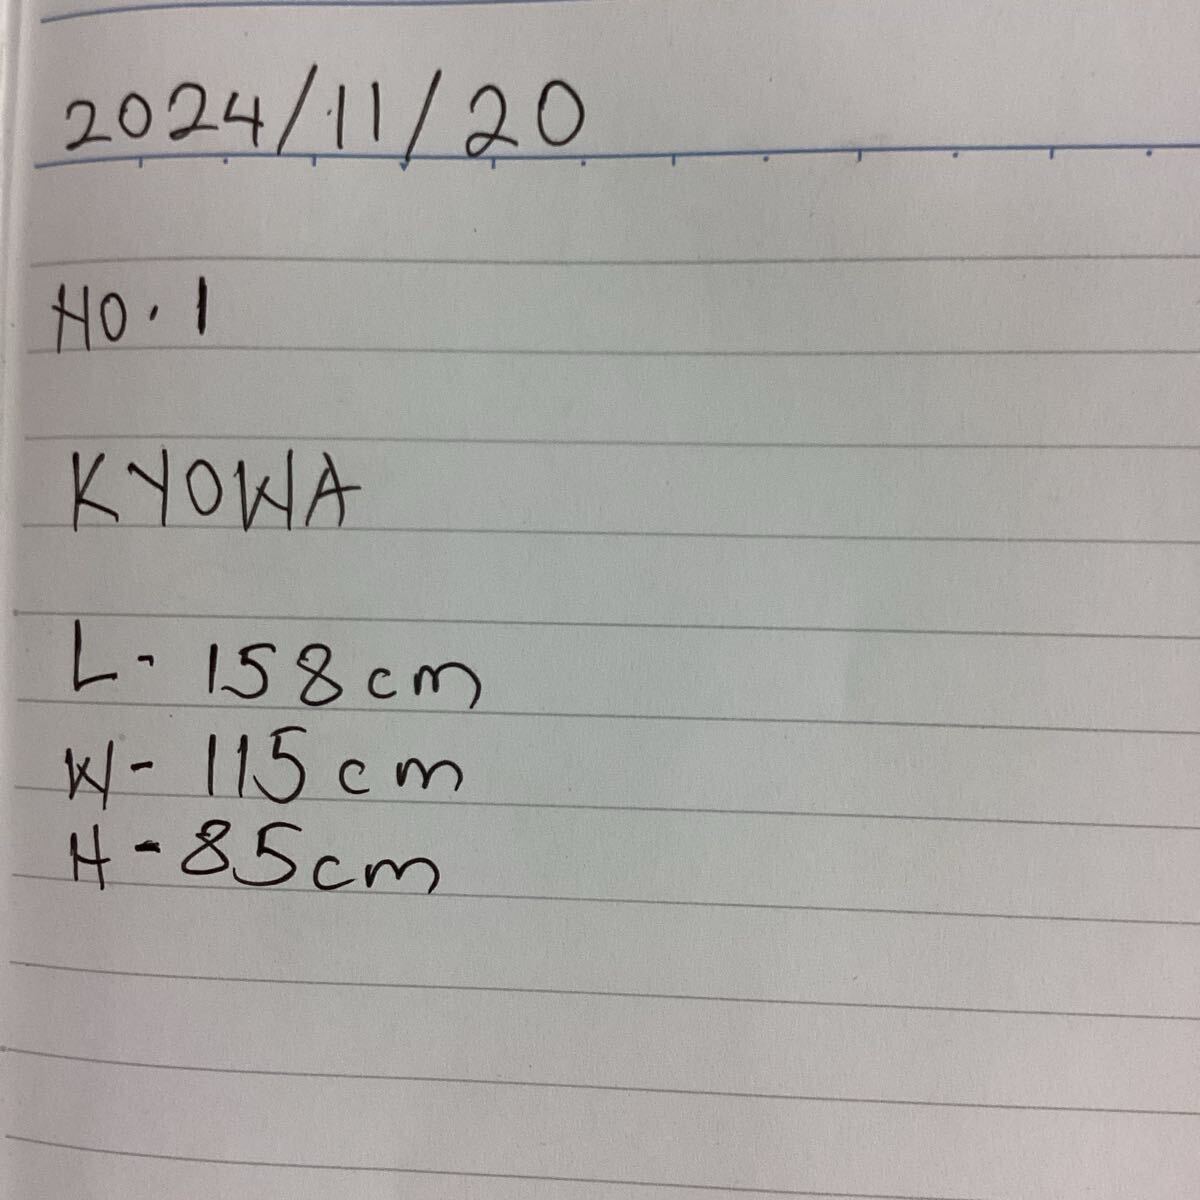 2024/11/20
NO.1
KYOWA
L- 158cm
W- 115cm
H-85cm